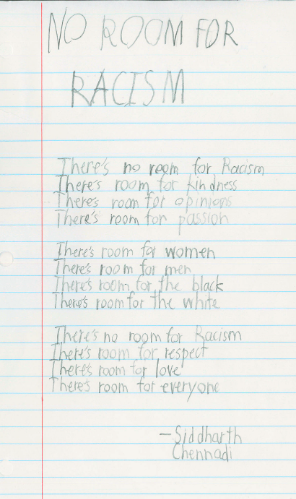 NO ROOM FOR
RACISM
There's no room for Racism
There's room for kindness
There's room for opinions
There's room for passion
There's room for women
There's room for men
There's room for the black
There's room for the white
There's no room for Racism
There's room for respect
There's room for love
There's room for everyone
—Siddharth
Chennadi